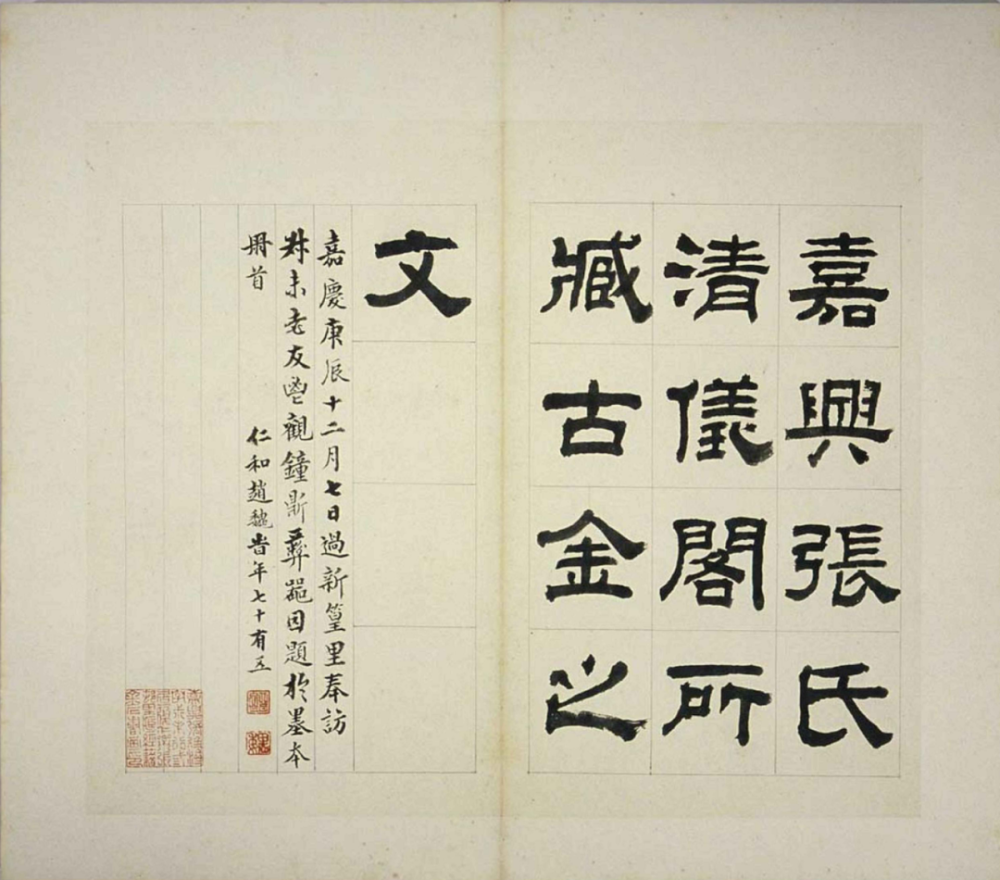 嘉興張氏
清儀閣所
臧古金之
文
嘉慶庚辰十二月七日過新篁里奉訪
叔未老友鬯觀鐘鼎彝器因題於墨本
冊首 仁和趙魏旹年七十有五